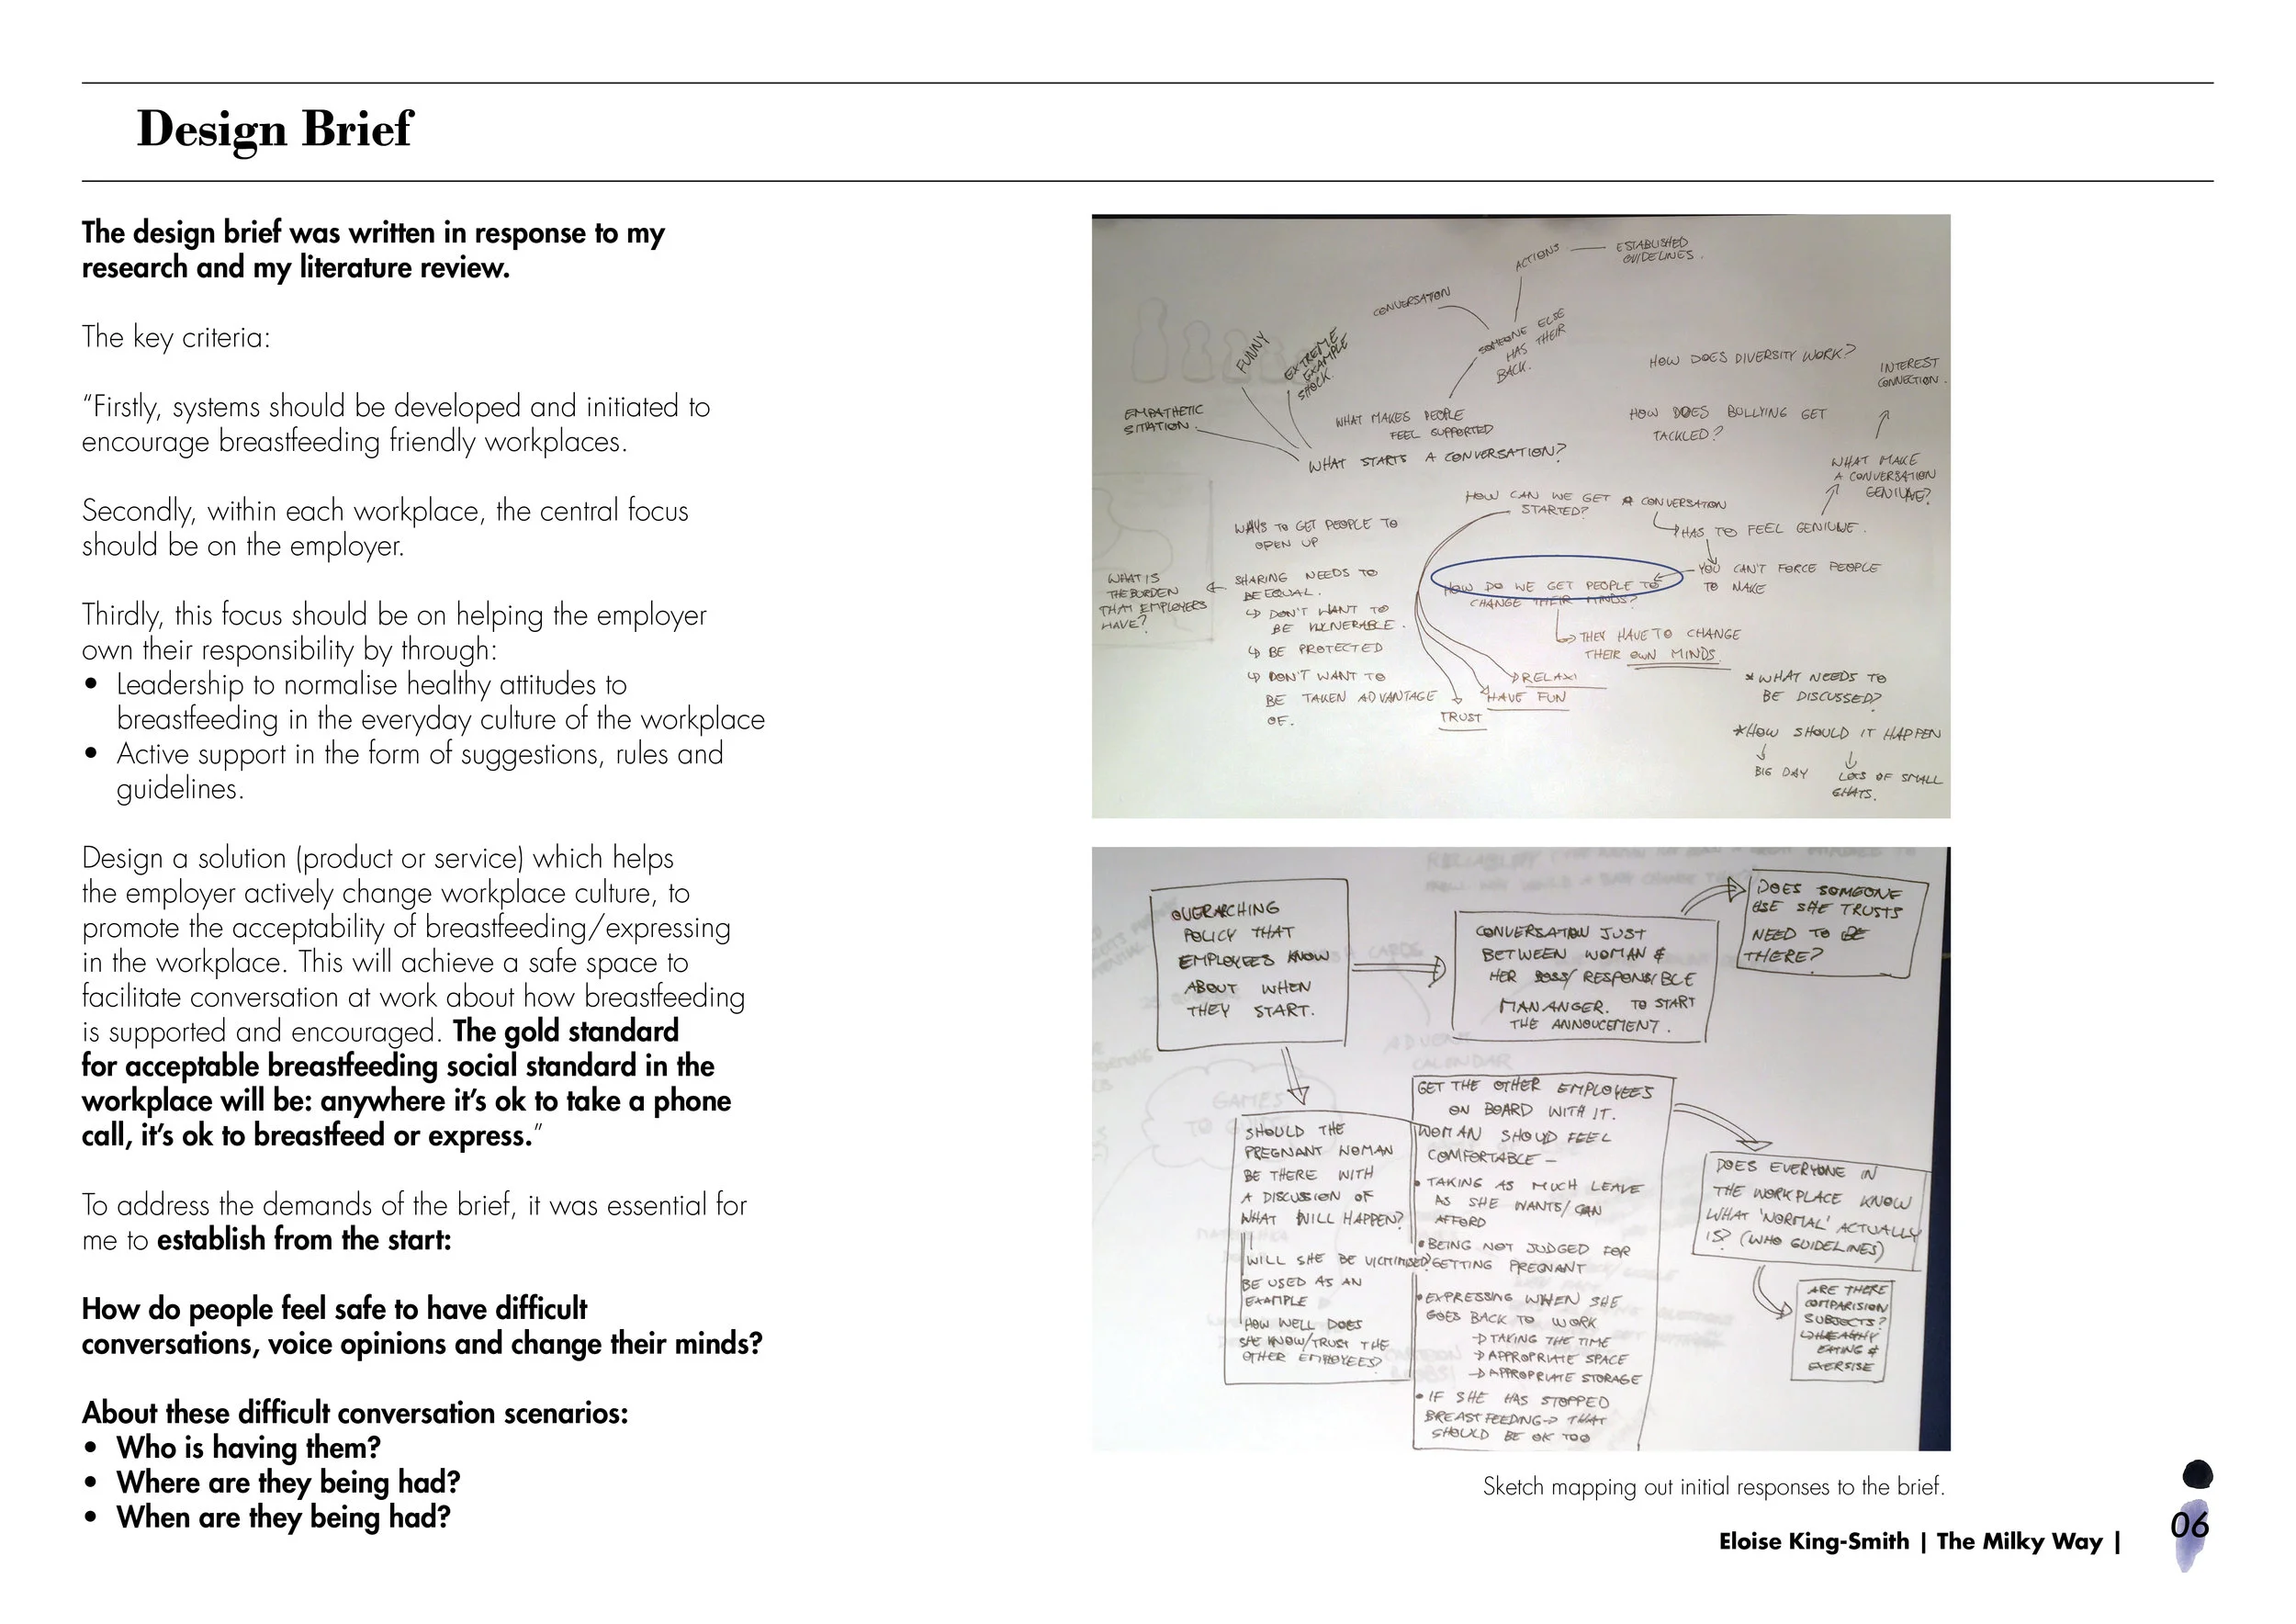 Design Brief
The design brief was written in response to my
research and my literature review.
The key criteria:
“Firstly, systems should be developed and initiated to
encourage breastfeeding friendly workplaces.
Secondly, within each workplace, the central focus
should be on the employer.
Thirdly, this focus should be on helping the employer
own their responsibility by through:
• Leadership to normalise healthy attitudes to
breastfeeding in the everyday culture of the workplace
• Active support in the form of suggestions, rules and
guidelines.
Design a solution (product or service) which helps
the employer actively change workplace culture, to
promote the acceptability of breastfeeding/expressing
in the workplace. This will achieve a safe space to
facilitate conversation at work about how breastfeeding
is supported and encouraged. The gold standard
for acceptable breastfeeding social standard in the
workplace will be: anywhere it’s ok to take a phone
call, it’s ok to breastfeed or express.”
To address the demands of the brief, it was essential for
me to establish from the start:
How do people feel safe to have difficult
conversations, voice opinions and change their minds?
About these difficult conversation scenarios:
• Who is having them?
• Where are they being had?
• When are they being had?
ACTIONS
ESTABLISHED
GUIDELINES.
CONVERSATION
SOMEONE ELSE
HAS THEIR
BACK.
FUNNY
EXTREME
EXAMPLE
SHOCK.
EMPATHETIC
SITATION.
WHAT MAKES PEOPLE
FEEL SUPPORTED
WHAT STARTS A CONVERSATION?
HOW DOES DIVERSITY WORK?
INTEREST
CONNECTION.
HOW DOES BULLYING GET
TACKLED?
WHAT MAKE
A CONVERSATION
GENIUNE?
HOW CAN WE GET A CONVERSATION
STARTED?
HAS TO FEEL GENIUNE.
YOU CAN'T FORCE PEOPLE
TO MAKE
WAYS TO GET PEOPLE TO
OPEN UP
SHARING NEEDS TO
BE EQUAL.
↳ DON'T WANT TO
BE VULNERABLE.
↳ BE PROTECTED
↳ DON'T WANT TO
BE TAKEN ADVANTAGE
OF.
WHAT IS
THE BURDEN
THAT EMPLOYERS
HAVE?
HOW DO WE GET PEOPLE TO
CHANGE THEIR MINDS?
THEY HAVE TO CHANGE
THEIR OWN MINDS.
RELAX
HAVE FUN
TRUST
* WHAT NEEDS TO
BE DISCUSSED?
* HOW SHOULD IT HAPPEN
BIG DAY
LOTS OF SMALL
CHATS.
OVERARCHING
POLICY THAT
EMPLOYEES KNOW
ABOUT WHEN
THEY START.
CONVERSATION JUST
BETWEEN WOMAN &
HER BOSS/ RESPONSIBLE
MANANGER. TO START
THE ANNOUCEMENT.
DOES SOMEONE
ELSE SHE TRUSTS
NEED TO BE
THERE?
SHOULD THE
PREGNANT WOMAN
BE THERE WITH
A DISCUSSION OF
WHAT WILL HAPPEN?
WILL SHE BE VICTIMISED?
BE USED AS AN
EXAMPLE
HOW WELL DOES
SHE KNOW/TRUST THE
OTHER EMPLOYEES?
GET THE OTHER EMPLOYEES
ON BOARD WITH IT.
WOMAN SHOUD FEEL
COMFORTABLE –
• TAKING AS MUCH LEAVE
AS SHE WANTS/ CAN
AFFORD
• BEING NOT JUDGED FOR
GETTING PREGNANT
• EXPRESSING WHEN SHE
GOES BACK TO WORK
→ TAKING THE TIME
→ APPROPRIATE SPACE
→ APPROPRIATE STORAGE
• IF SHE HAS STOPPED
BREASTFEEDING → THAT
SHOULD BE OK TOO
DOES EVERYONE IN
THE WORKPLACE KNOW
WHAT 'NORMAL' ACTUALLY
IS? (WHO GUIDELINES)
ARE THERE
COMPARISION
SUBJECTS?
↳ HEALTHY
EATING &
EXERSISE
GAMES
CALENDAR
Sketch mapping out initial responses to the brief.
Eloise King-Smith | The Milky Way |
06